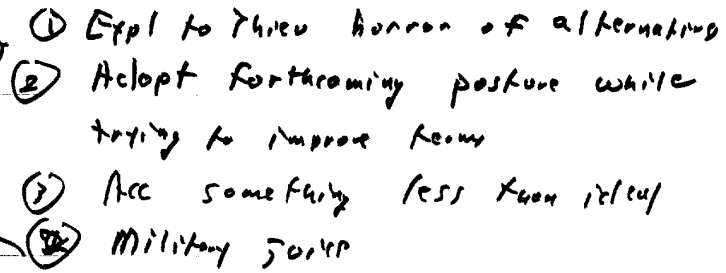 ① Expl to Thieu horror of alternatives
② Adopt forthcoming posture while
trying to improve terms
③ Acc something less than ideal
④ Military